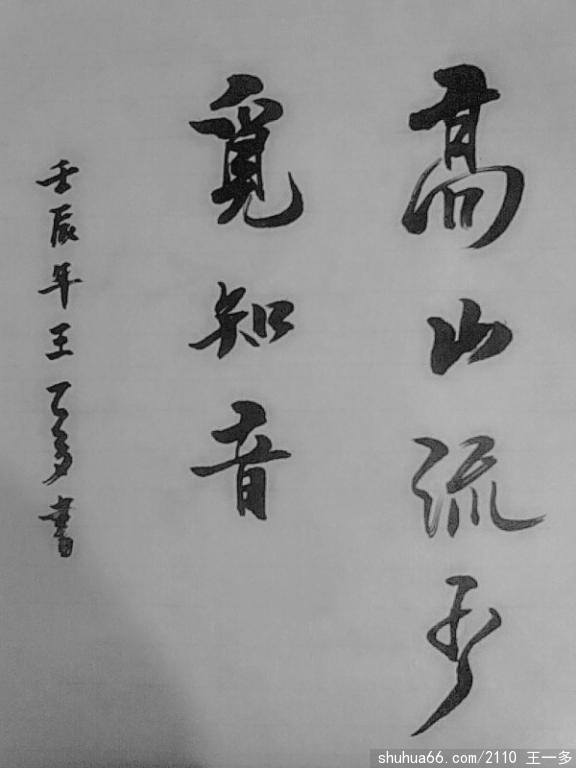 高山流水
覓知音
壬辰年王乙多書
shuhua66.com/2110 王一多